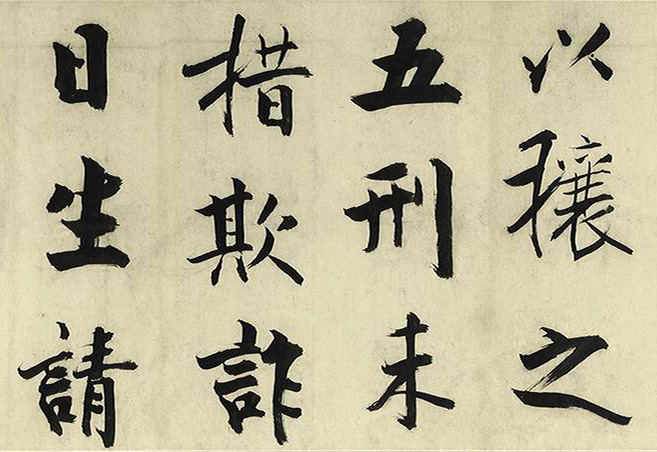 以穰之
五刑未
措欺詐
日生請